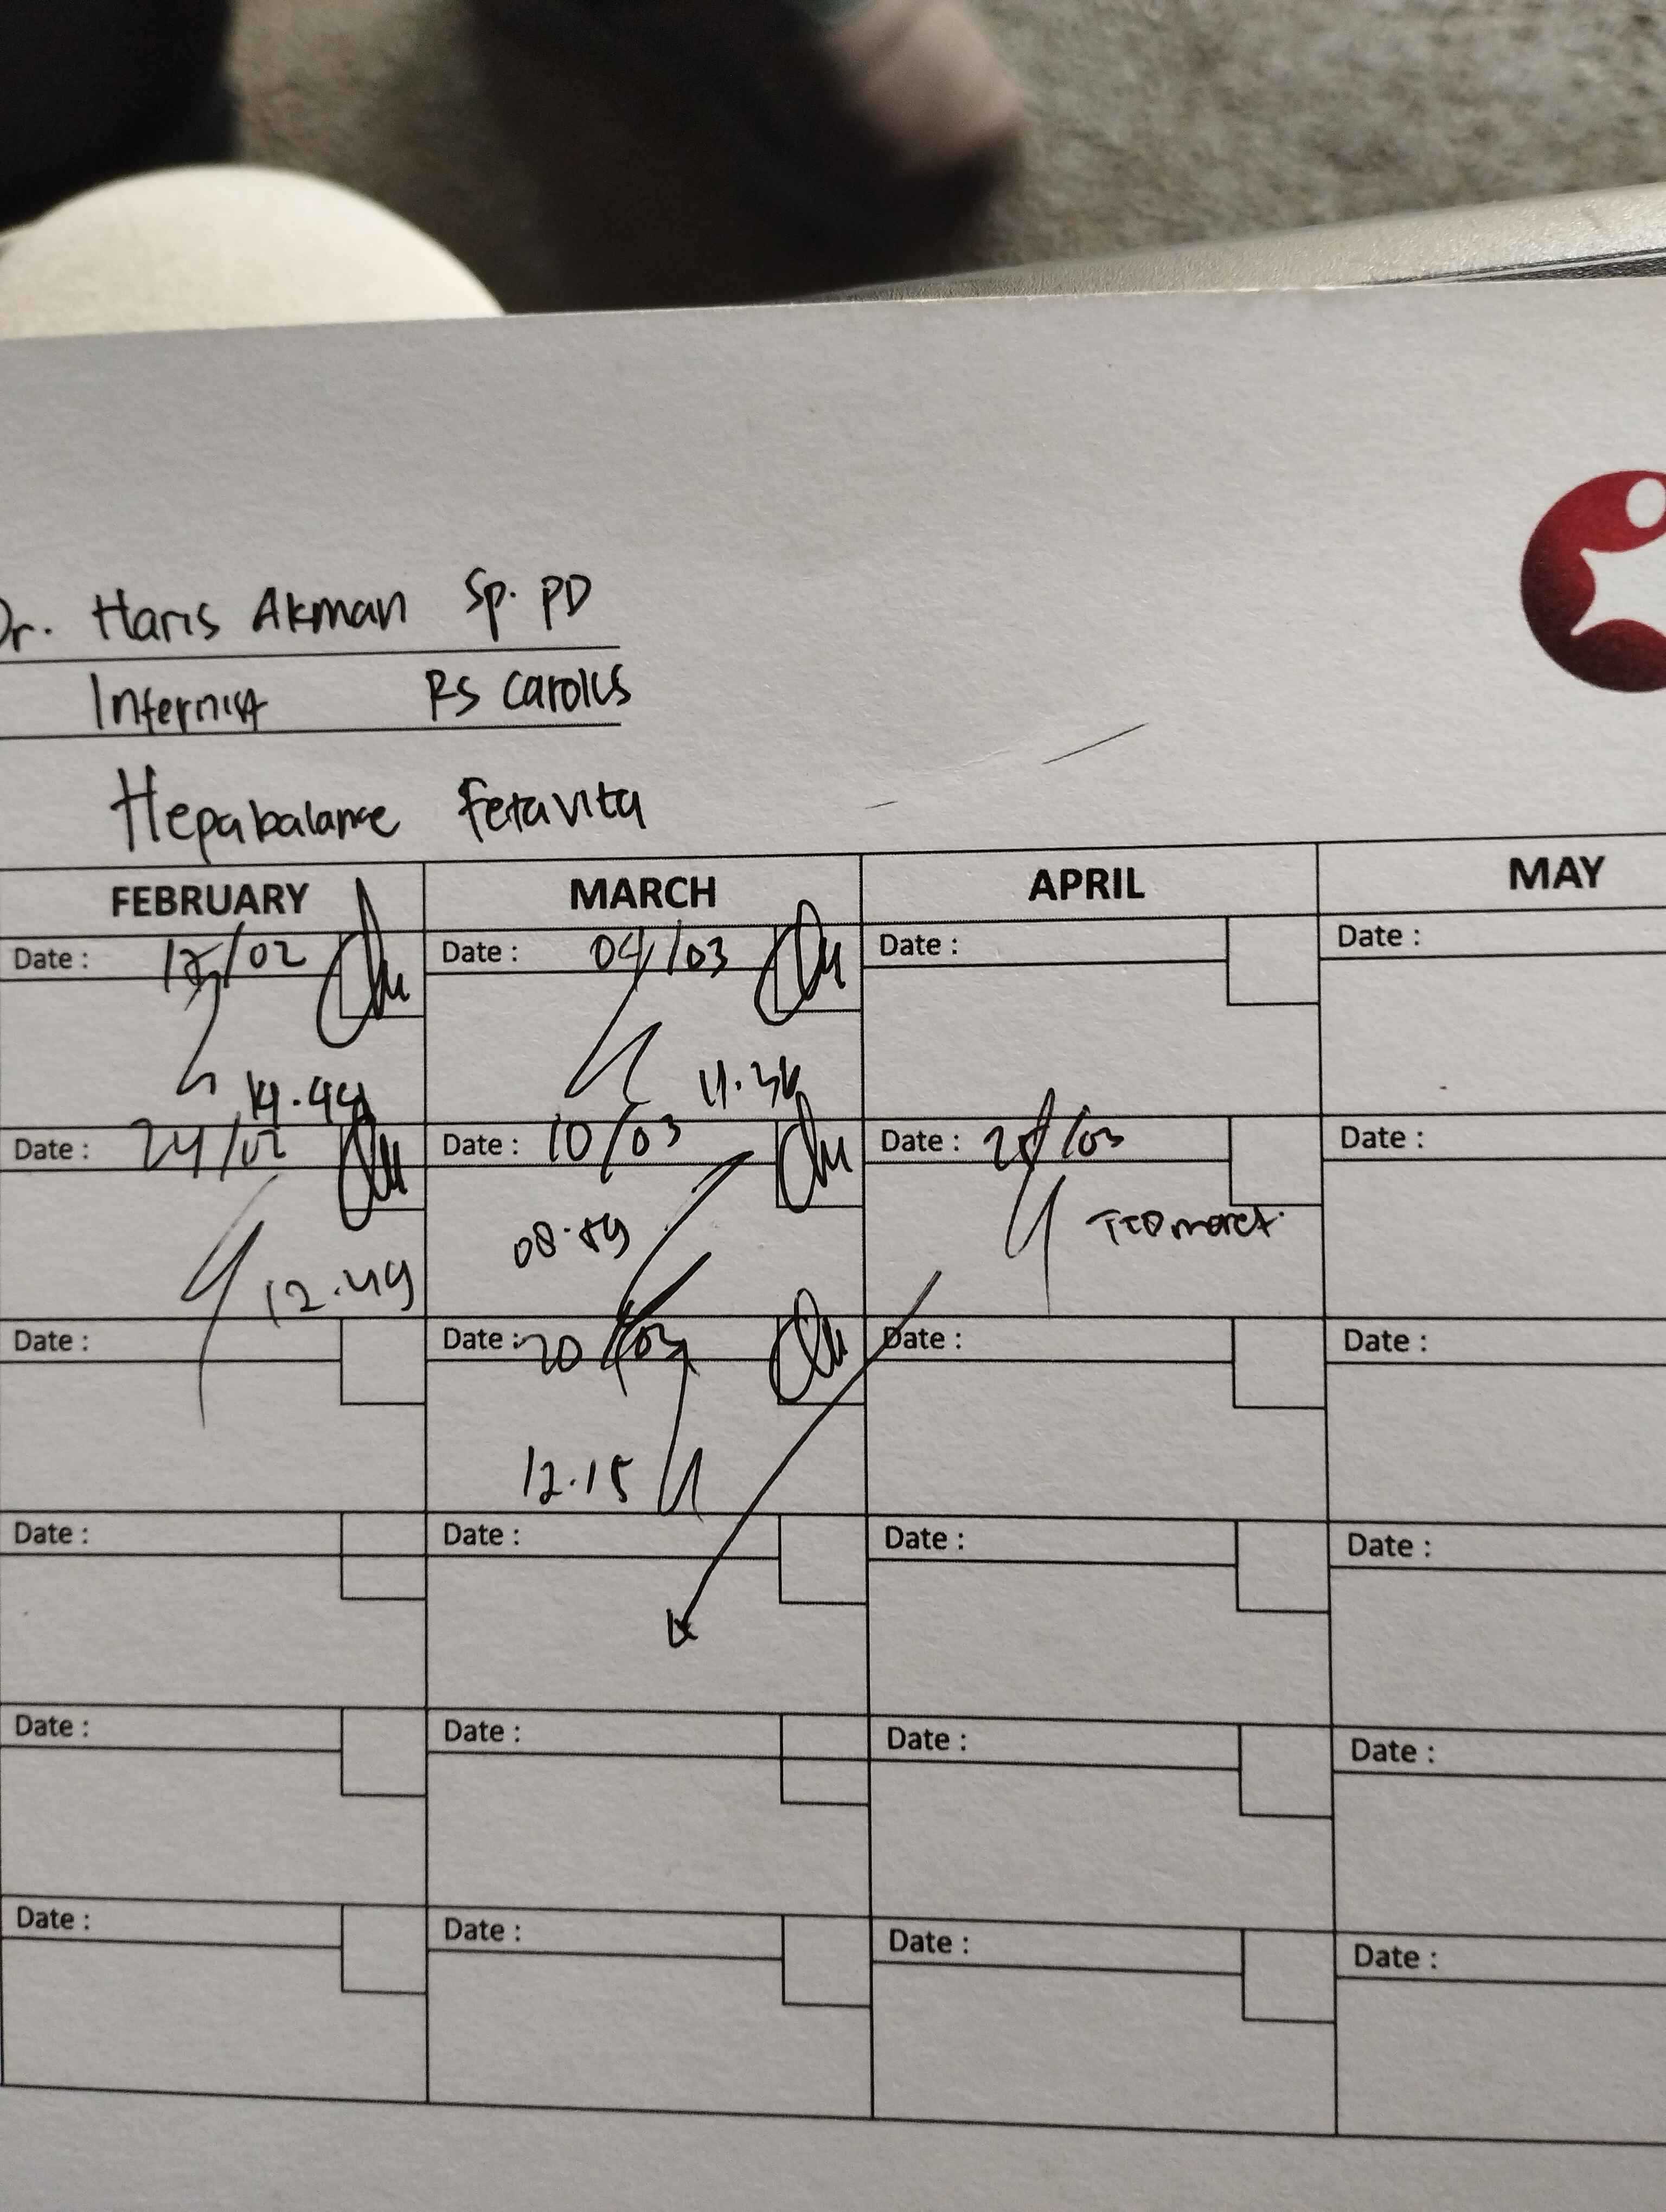 Dr. Haris Akman Sp. PD
Internist RS Carolus
Hepabalance Fetavita
FEBRUARY MARCH APRIL MAY
Date : /02 Date : 04/03 Date : Date :
14.44 11.36
Date : 24/02 Date : 10/03 Date : /03 Date :
08.59
12.49
Date : Date : 20/03 Date : Date :
12.15
Date : Date : Date : Date :
Date : Date : Date : Date :
Date : Date : Date : Date :